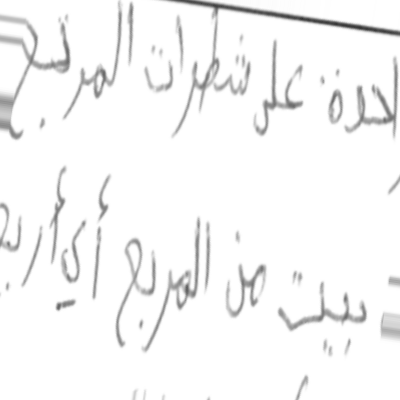 احدة على شطرات
بيت من المربع أي أربع